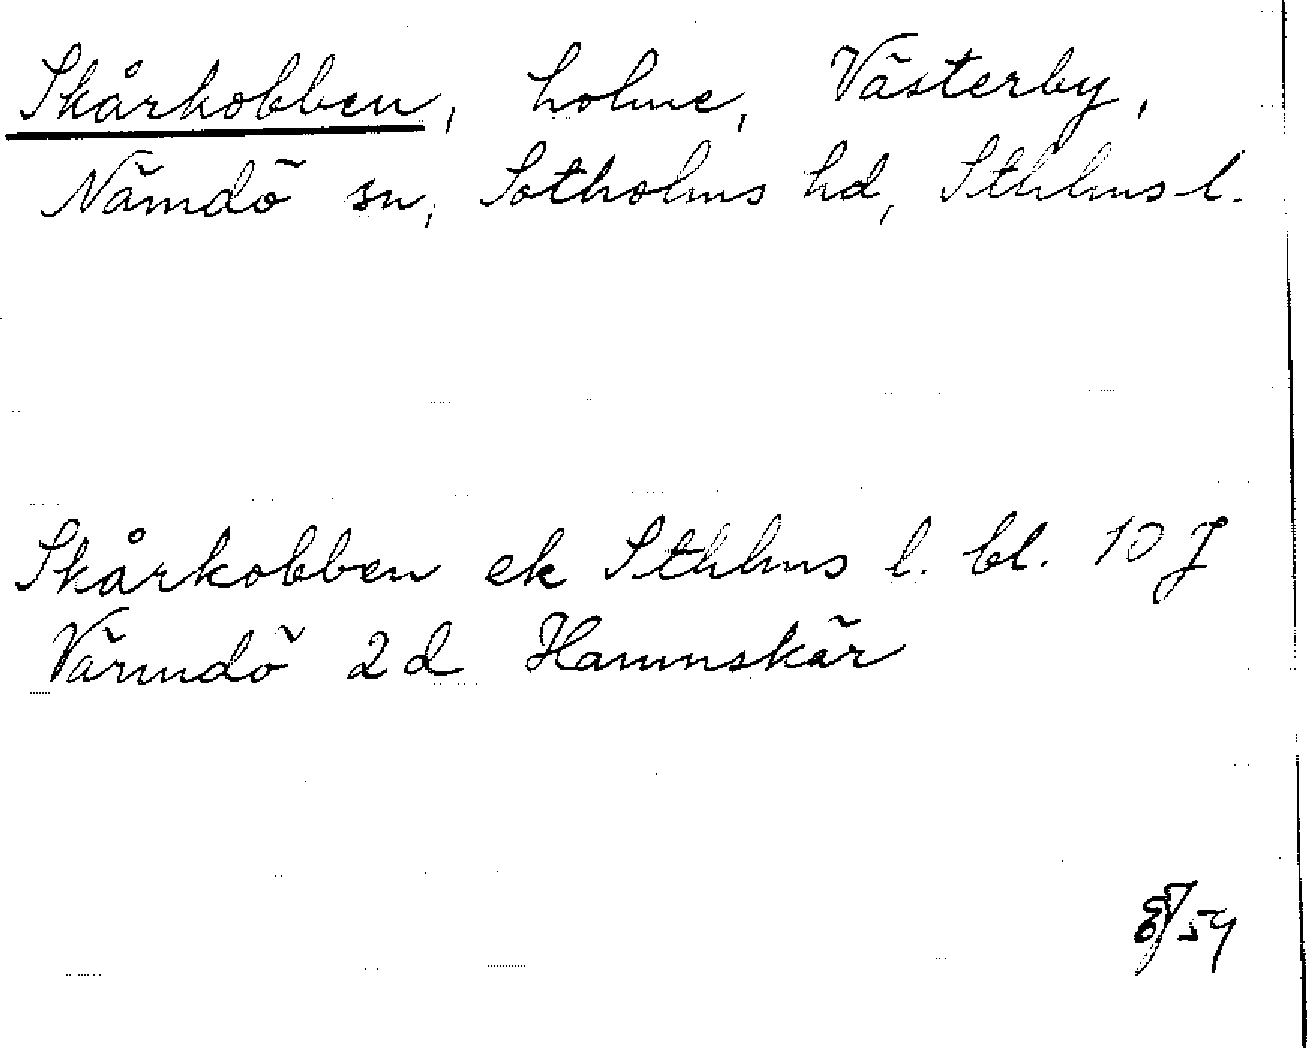 Skårkobben, holme, Västerby,
Nämdö sn, Sotholms hd, Sthlms l.
Skårkobben ek Sthlms l. bl. 10 J
Värmdö 2d Hamnskär